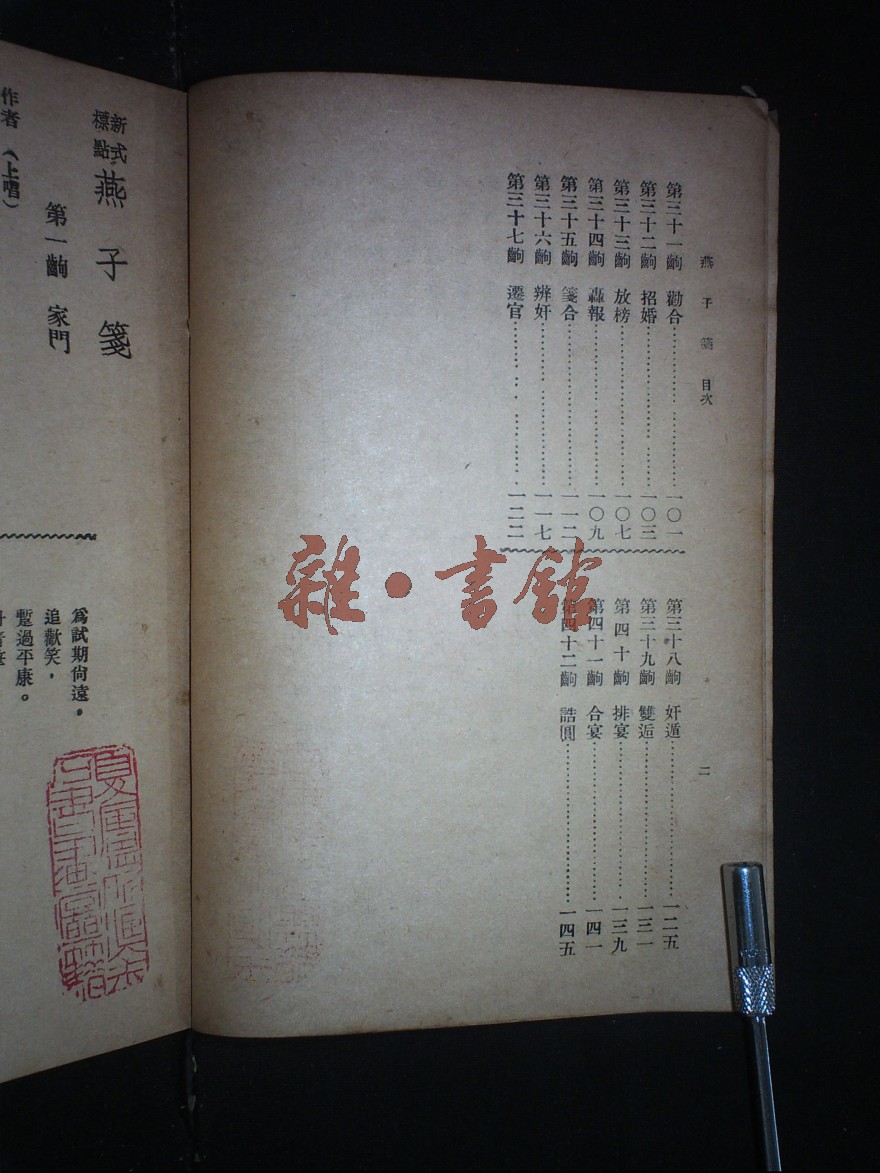 燕子箋 目次
二
第三十一齣 勸合 一〇一
第三十二齣 招婚 一〇三
第三十三齣 放榜 一〇七
第三十四齣 轟報 一〇九
第三十五齣 箋合 一一二
第三十六齣 辨奸 一一七
第三十七齣 遷官 一二二
第三十八齣 奸遁 一二五
第三十九齣 雙逅 一三一
第四十齣 排宴 一三九
第四十一齣 合宴 一四一
第四十二齣 誥圓 一四五
雜·書館
新式標點 燕子箋
第一齣 家門
作者 (上唱)
爲試期尙遠，
追歡笑，
蹔過平康。